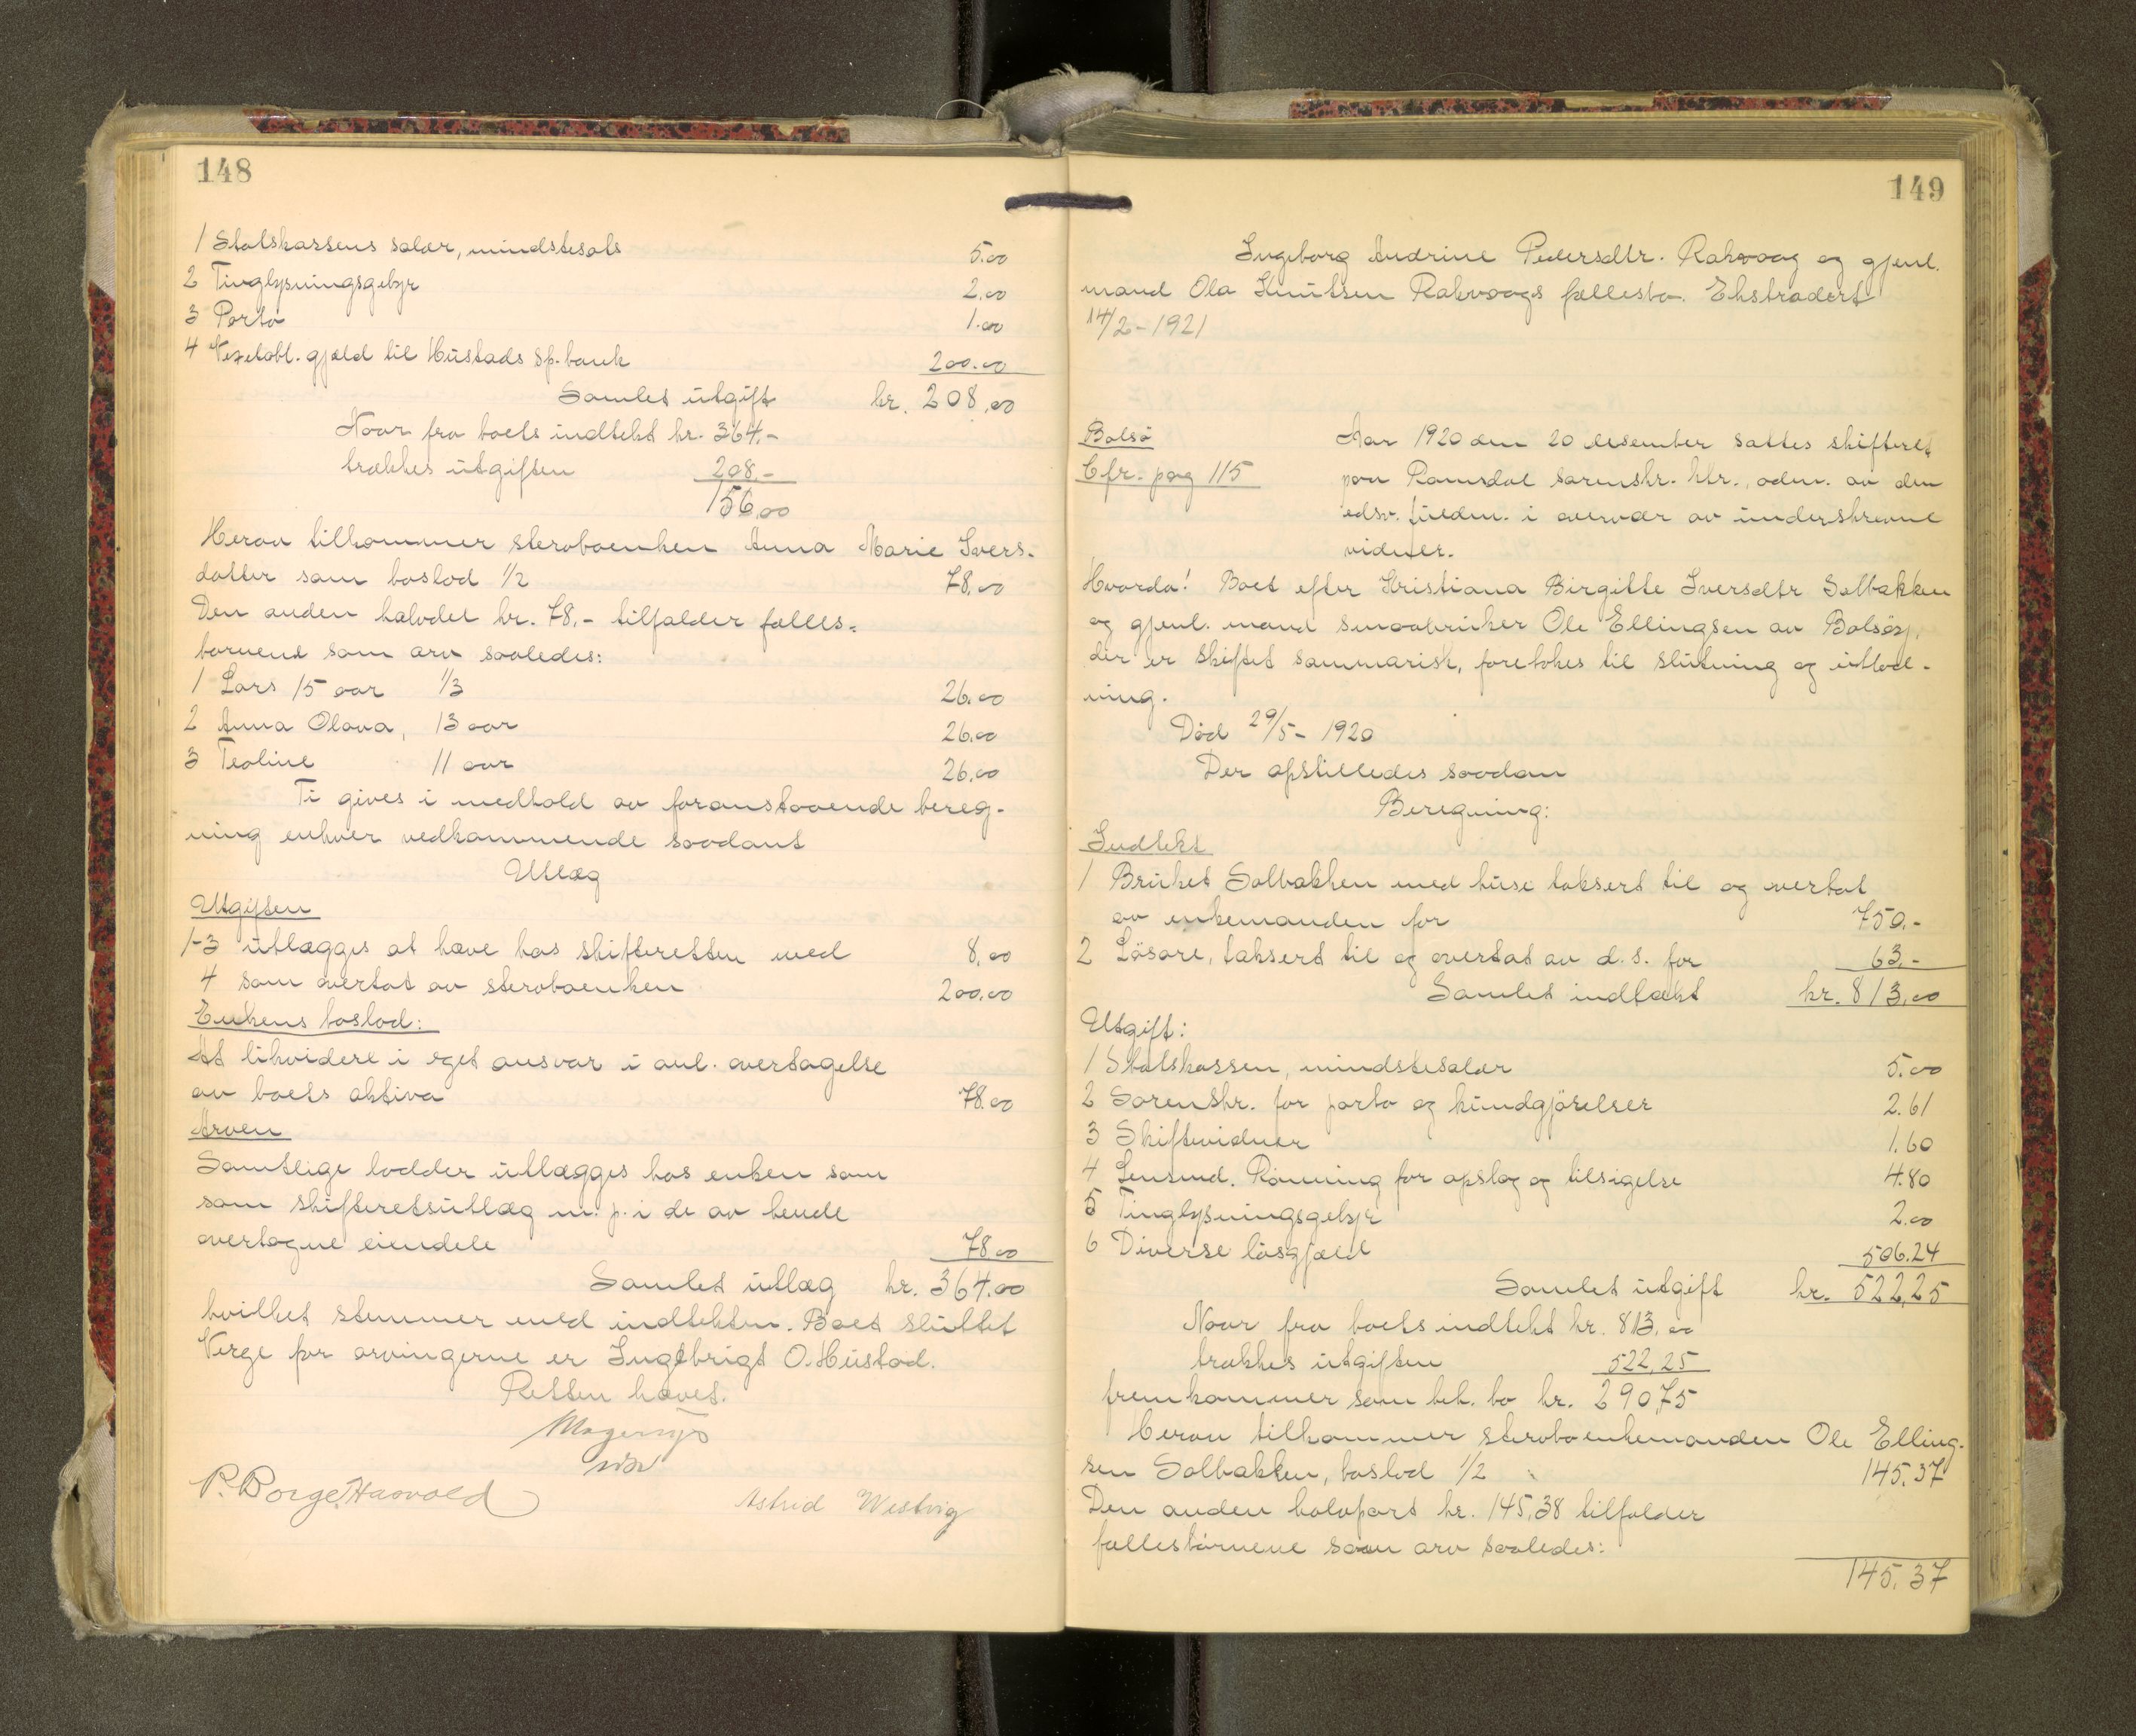 148
1 Statskassens salær, mindstesats 5.00
2 Tinglysningsgebyr 2.00
3 Porto 1.00
4 Vexelobl. gjæld til Hustads sp.bank 200.00
Samlet utgift kr. 208,00
Naar fra boets indtekt kr. 364,-
trækkes utgiften 208,-
156,00
Herav tilkommer stervboenken Anna Marie Ivers-
datter som boslod 1/2 78,00
Den anden halvdel kr. 78,- tilfalder fælles-
barnene som arv saaledes:
1 Lars 15 aar 1/3 26.00
2 Anna Olava, 13 aar 26.00
3 Teoline 11 aar 26.00
Ti gives i medhold av foranstaaende bereg-
ning enhver vedkommende saadant
Utlæg
Utgiften
1-3 utlægges at hæve hos skifteretten med 8,00
4 som overtat av stervboenken 200.00
Enkens boslod:
At likvidere i eget ansvar i anl. overtagelse
av boets aktiva 78.00
Arven
Samtlige lodder utlægges hos enken som
som skifteretsutlæg m. p. i de av hende
overtagne eiendele 78.00
Samlet utlæg kr. 364.00
hvilket stemmer med indtekten. Boet sluttet
Verge for arvingerne er Ingebrigt O. Hustad.
Retten hævet.
P. Borge Haavold
Astrid Westvig
149
Ingeborg Andrine Pedersdtr. Rakvaag og gjenl.
mand Ola Knutsen Rakvaags fællesbo. Ekstradert
14/2-1921
Bolsö
Cfr. pag 115
Aar 1920 den 20 desember sattes skifteret
paa Romsdal sorenskr. ktr., adm. av den
edsv. fuldm. i overvær av underskrevne
vidner.
Hvorda! Boet efter Kristiana Birgitte Iversdtr Solbakken
og gjenl. mand smaabruker Ole Ellingsen av Bolsösp.
der er skiftet sammarisk, foretokes til slutning og utlod-
ning.
Död 29/5- 1920
Der opstilledes saadan
Beregning:
Indtekt
1 Bruket Solbakken med huse taksert til og overtat
av enkemanden for 750.-
2 Lösöre, taksert til og overtat av d. s. for 63,-
Samlet indtækt kr. 813,00
Utgift:
1 Statskassen, mindstesalær 5.00
2 Sorenskr. for porto og kundgjörelser 2.61
3 Skiftevidner 1.60
4 Lensmd. Rönning for opslag og tilsigelse 4.80
5 Tinglysningsgebyr 2.00
6 Diverse lösgjæld 506.24
Samlet utgift kr. 522,25
Naar fra boets indtekt kr. 813,00
trækkes utgiften 522,25
fremkommer som beh. bo kr. 290,75
herav tilkommer stervboenkemanden Ole Elling-
sen Solbakken, boslod 1/2 145.37
Den anden halvpart kr. 145,38 tilfalder
fællesbörnene som arv saaledes:
145.37